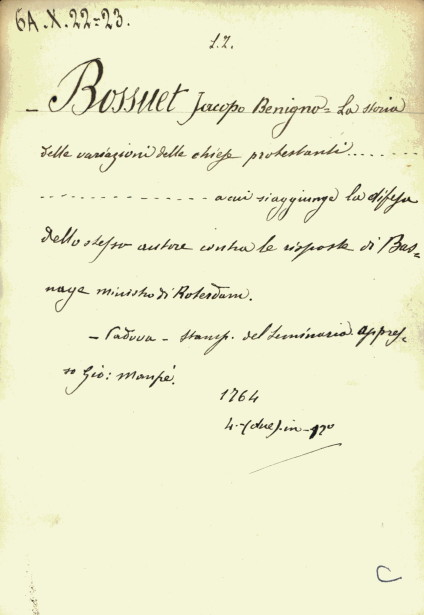 6A.X.22=23.
- Bossuet Jacopo Benigno= La storia
delle variazioni delle chiese protestanti..........
.................. a cui si aggiunge la difesa
dello stesso autore contra le risposte di Bas=
nage ministro di Roterdam.
- Padova - stamp. del Seminario appres-
so Gio: Manfré.
1764
4.-(due) in-
C